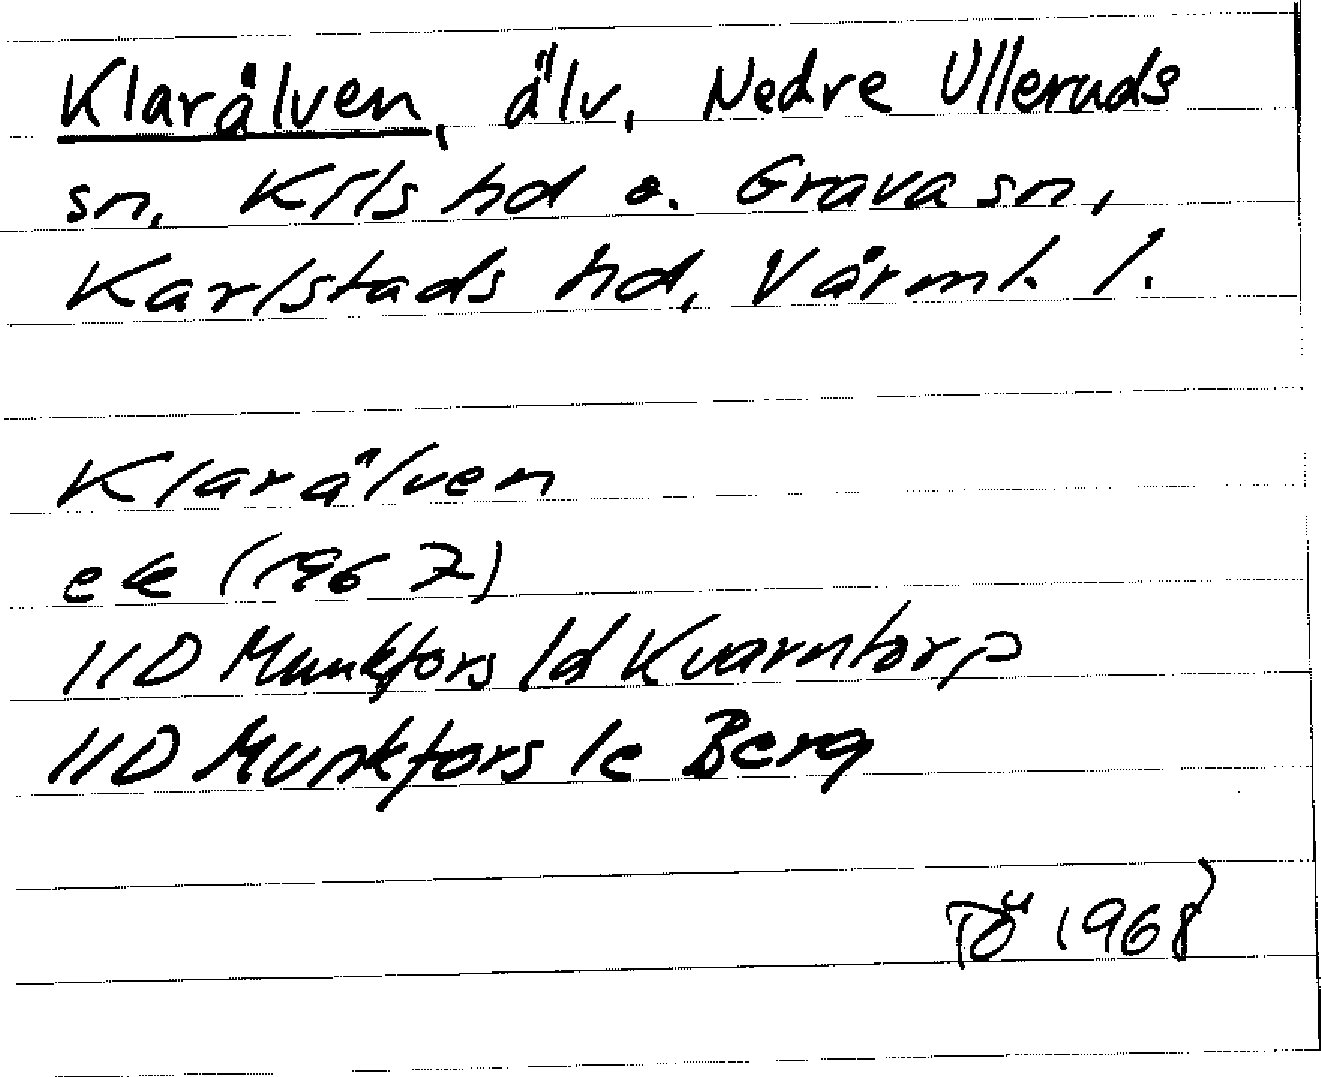 Klarälven, älv, Nedre Ulleruds
sn, Kils hd o. Grava sn,
Karlstads hd, Värml. l.
Klarälven
ek (1967)
11D Munkfors 1d Kvarntorp
11D Munkfors 1c Berg
TÖ 1968